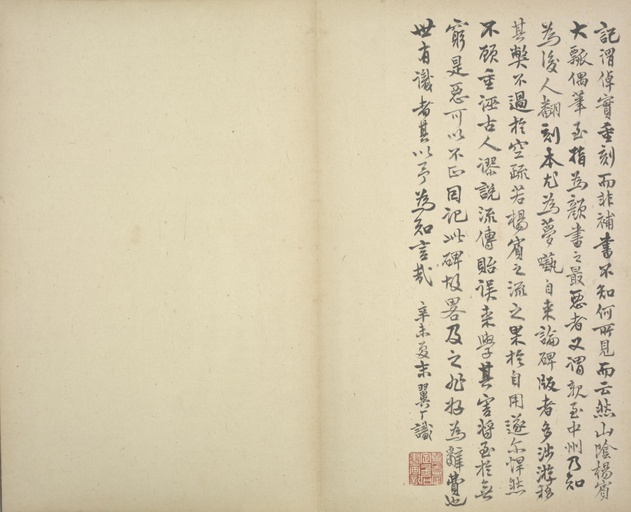 記謂倬實重刻而非補書不知何所見而云然山陰楊賓
大瓢偶筆至指為顏書之最惡者又謂親至中州乃知
為後人翻刻本尤為夢囈自來論碑版者多涉游移
其弊不過於空疏若楊賓之流之果於自用遂尔悍然
不顧重誣古人謬說流傳貽误來學其害將至於無
窮是惡可以不正因記此碑故畧及之非好為辭費也
世有識者其以予為知言哉 辛未夏末翼丁識